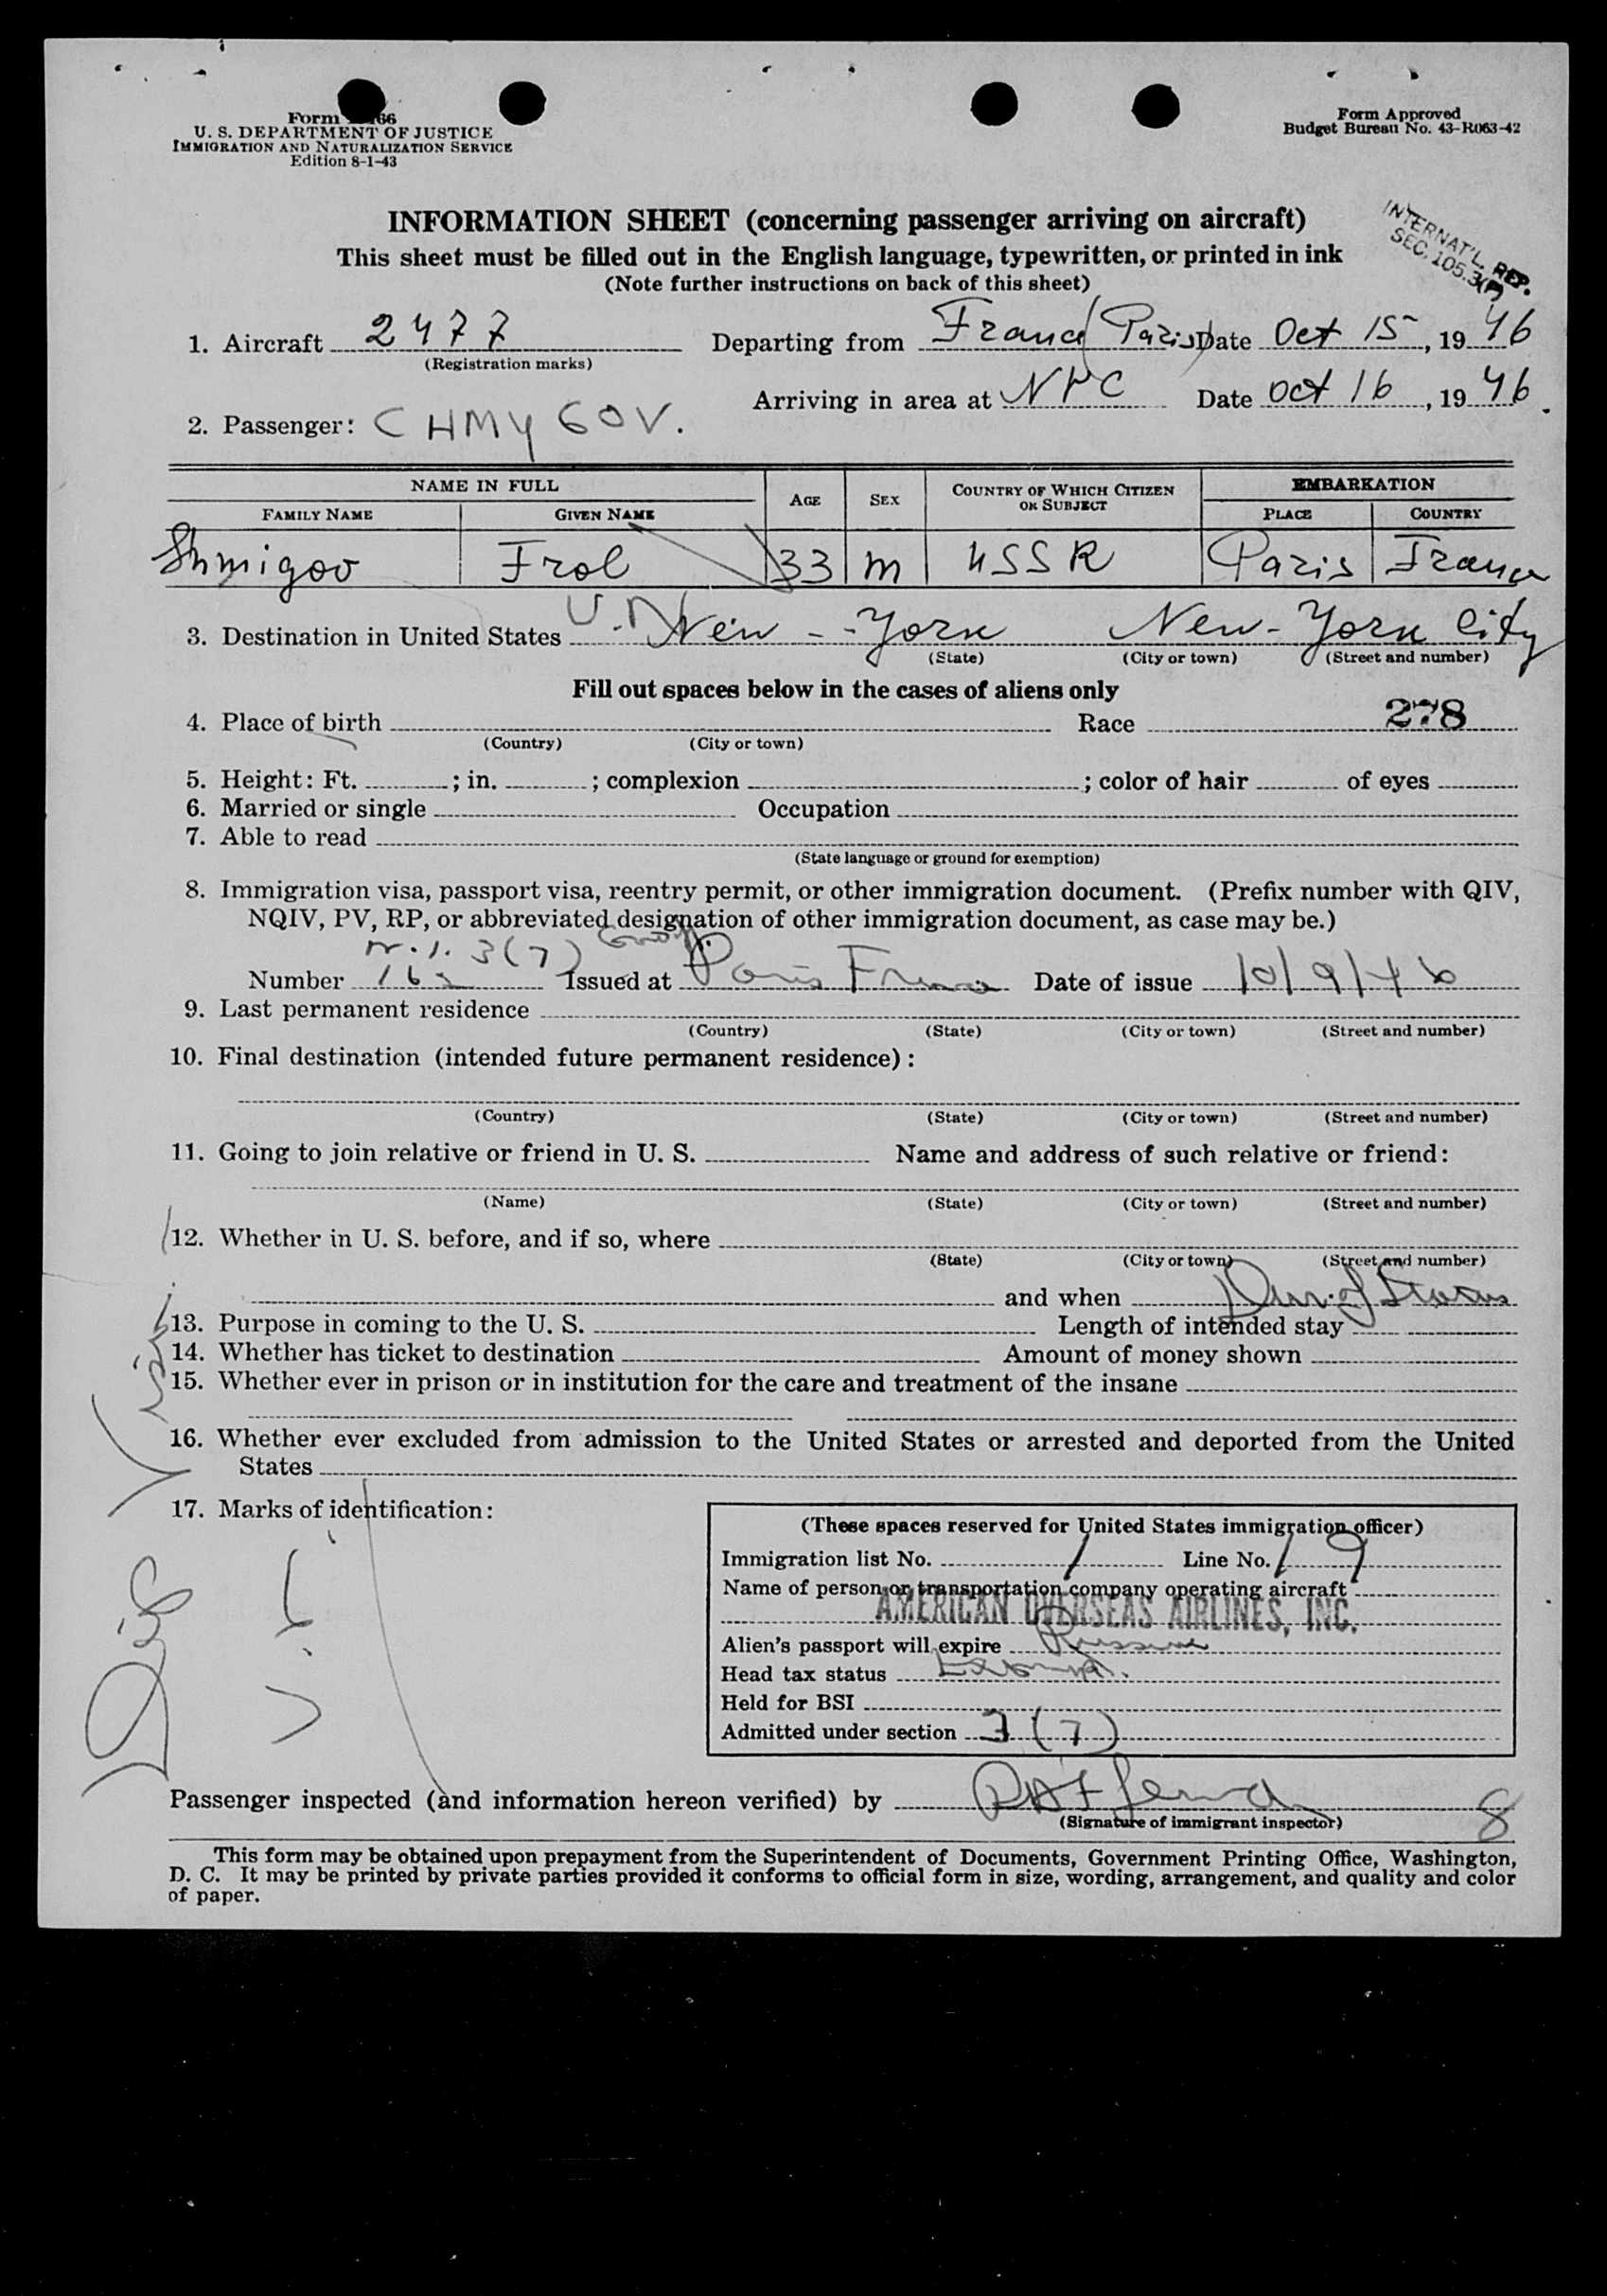 Form 66
U. S. DEPARTMENT OF JUSTICE
IMMIGRATION AND NATURALIZATION SERVICE
Edition 8-1-43
Form Approved
Budget Bureau No. 43-R063-42
INFORMATION SHEET (concerning passenger arriving on aircraft)
This sheet must be filled out in the English language, typewritten, or printed in ink
(Note further instructions on back of this sheet)
INTERNAT'L. REP.
SEC. 105.3(P)
1. Aircraft 2477 Departing from France (Paris) Date Oct 15, 1946
(Registration marks)
Arriving in area at NYC Date Oct 16, 1946.
2. Passenger: CHMYGOV.
NAME IN FULL AGE SEX COUNTRY OF WHICH CITIZEN OR SUBJECT EMBARKATION
FAMILY NAME GIVEN NAME PLACE COUNTRY
Shmigov Frol 33 m USSR Paris France
3. Destination in United States U.N. New-York New-York City
(State) (City or town) (Street and number)
Fill out spaces below in the cases of aliens only
4. Place of birth Race 278
(Country) (City or town)
5. Height: Ft. ; in. ; complexion ; color of hair of eyes
6. Married or single Occupation
7. Able to read
(State language or ground for exemption)
8. Immigration visa, passport visa, reentry permit, or other immigration document. (Prefix number with QIV,
NQIV, PV, RP, or abbreviated designation of other immigration document, as case may be.)
3(7)
Number Issued at Paris France Date of issue 10/9/46
9. Last permanent residence
(Country) (State) (City or town) (Street and number)
10. Final destination (intended future permanent residence):
(Country) (State) (City or town) (Street and number)
11. Going to join relative or friend in U. S. Name and address of such relative or friend:
(Name) (State) (City or town) (Street and number)
12. Whether in U. S. before, and if so, where
(State) (City or town) (Street and number)
and when Dur. of Status
13. Purpose in coming to the U. S. Length of intended stay
14. Whether has ticket to destination Amount of money shown
15. Whether ever in prison or in institution for the care and treatment of the insane
16. Whether ever excluded from admission to the United States or arrested and deported from the United
States
17. Marks of identification:
(These spaces reserved for United States immigration officer)
Immigration list No. 1 Line No. 19
Name of person or transportation company operating aircraft
AMERICAN OVERSEAS AIRLINES, INC.
Alien's passport will expire
Head tax status Exempt.
Held for BSI
Admitted under section 3(7)
Passenger inspected (and information hereon verified) by
(Signature of immigrant inspector)
8
This form may be obtained upon prepayment from the Superintendent of Documents, Government Printing Office, Washington,
D. C. It may be printed by private parties provided it conforms to official form in size, wording, arrangement, and quality and color
of paper.